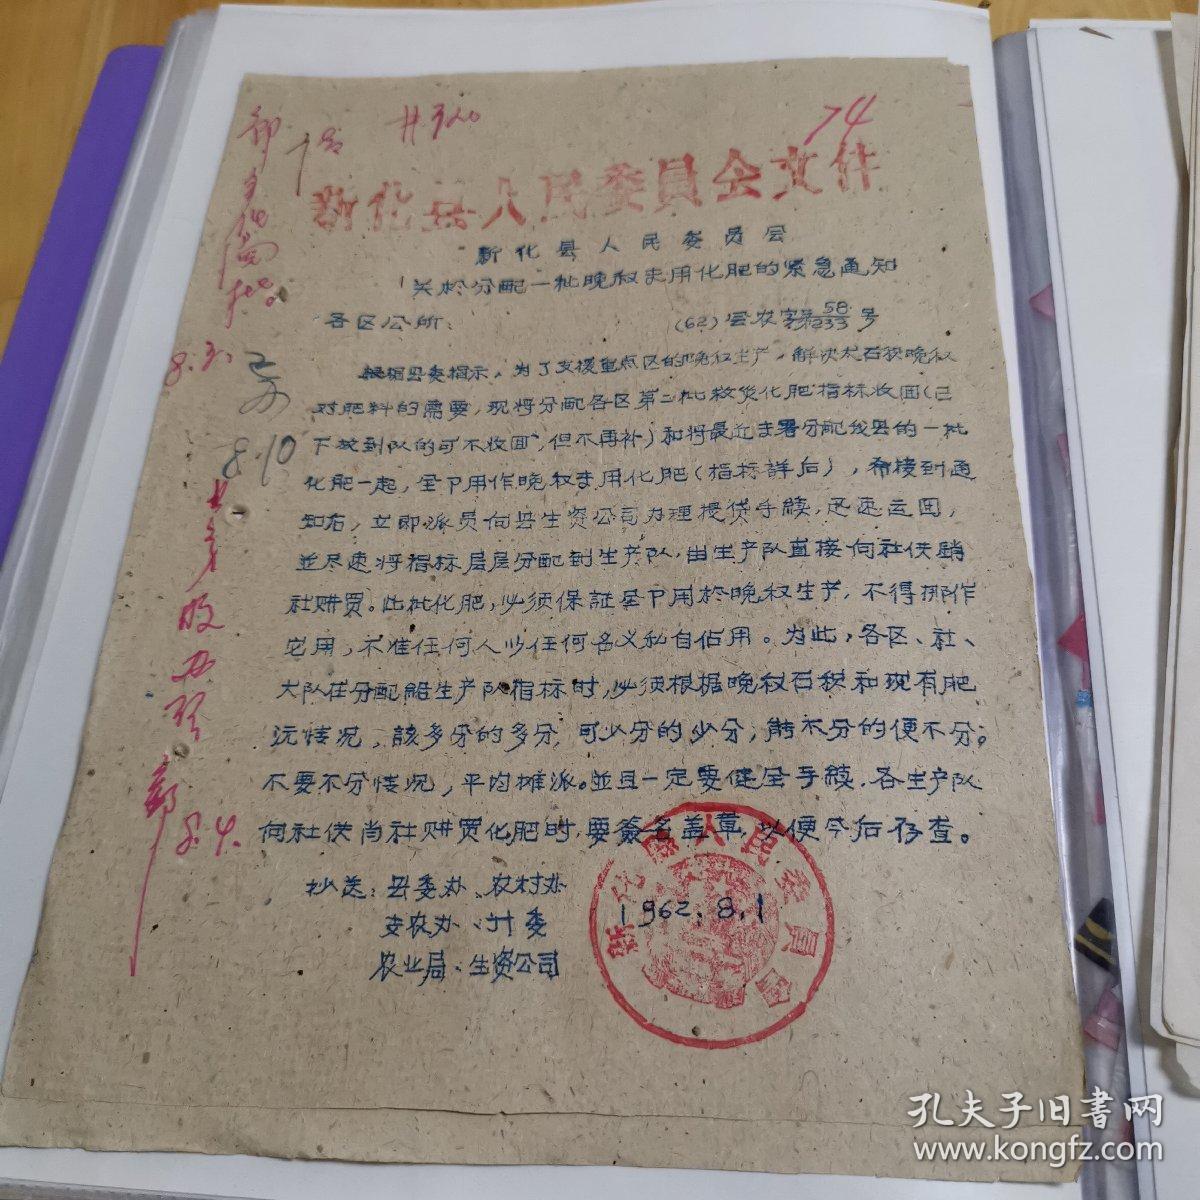 74
新化县人民委員会文件
新化县人民委员会
关於分配一批晚秋专用化肥的紧急通知
各区公所：
(62)会农字第58/233号
根据县委指示，为了支援重点区的晚秋生产，解决大面积晚秋
对肥料的需要，现将分配各区第二批救灾化肥指标收回（已
下放到队的可不收回，但不再补）和将最近专署分配我县的一批
化肥一起，全下用作晚秋专用化肥（指标詳后），希接到通
知后，立即派员向县生资公司办理提貨手續，迅速运回，
並尽速将指标层层分配到生产队，由生产队直接向社供銷
社购買。此批化肥，必须保証全下用於晚秋生产，不得挪作
它用，不准任何人以任何名义私自佔用。为此，各区、社、
大队在分配給生产队指标时，必须根据晚秋面积和现有肥
沅情况，該多分的多分，可少分的少分；能不分的便不分。
不要不分情况，平均摊派。並且一定要健全手續，各生产队
向社供尚社购買化肥时，要簽名盖章，以便今后存查。
抄送：县委办、农村办
支农办、计委
农业局、生资公司
1962.8.1
新化縣人民委員會
8.3.
8.10
办理
8.4.
孔夫子旧书网
www.kongfz.com